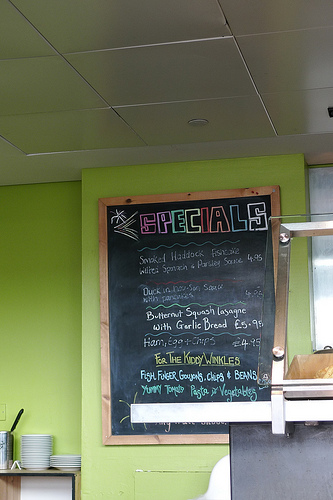 SPECIALS
Smoked Haddock Fishcake
Wilted Spinach & Parsley Sauce 4.95
Duck in hoi sin sauce
with pancakes 4.95
Butternut Squash Lasagne
with Garlic Bread £5.95
Ham, Egg + Chips £4.95
For The Kiddy Winkles
Fish Finger Goujons, Chips & BEANS
Yummy Tomato Pasta & Vegetables